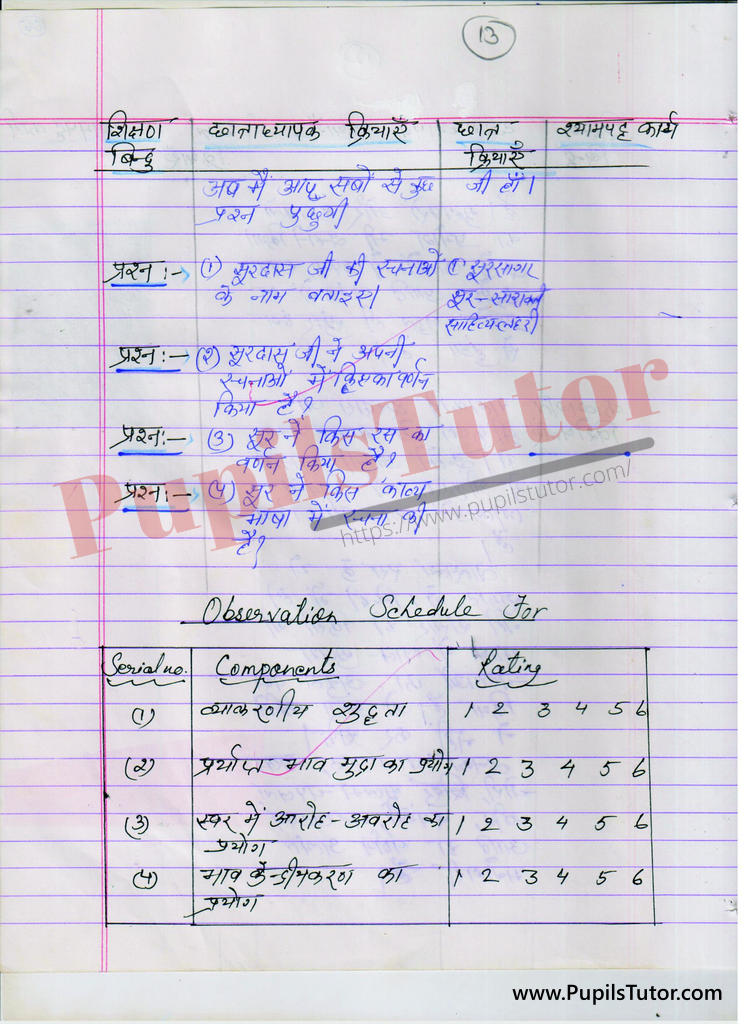 13
शिक्षण छात्राध्यापक क्रियाएँ छात्र श्यामपट्ट कार्य
बिन्दु क्रियाएँ
अब मैं आप सबों से कुछ जी हाँ।
प्रश्न पुछुगी
प्रश्न :- (1) सूरदास जी की रचनाओं (1 सूरसागर
के नाम बताइए। सूर-सारावली
साहित्यलहरी
प्रश्न :- (2) सूरदास जी ने अपनी
रचनाओं में किसका वर्णन
किया है?
प्रश्न :- (3) सूर ने किस रस का
वर्णन किया है?
प्रश्न :- (4) सूर ने किस काव्य
भाषा में रचना की
है?
PupilsTutor
https://www.pupilstutor.com/
Observation Schedule For
Serial no. Components Rating
(1) व्याकरणीय शुद्धता 1 2 3 4 5 6
(2) प्रर्याप्त भाव मुद्रा का प्रयोग 1 2 3 4 5 6
(3) स्वर में आरोह-अवरोह का 1 2 3 4 5 6
प्रयोग
(4) भाव केन्द्रीयकरण का 1 2 3 4 5 6
प्रयोग
www.PupilsTutor.com